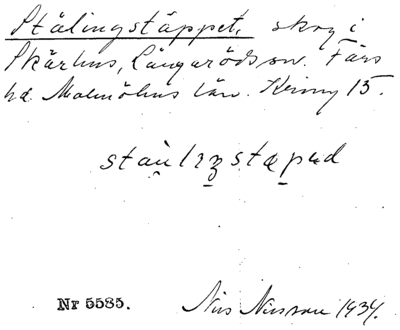 Stälingstäppet, skog i
Skärhus, Långaröds sn. Färs
hd. Malmöhus län. Kinny 15.
staùlɪʒstæpəd
Nr 5585.
Nils Nilsson 1934.